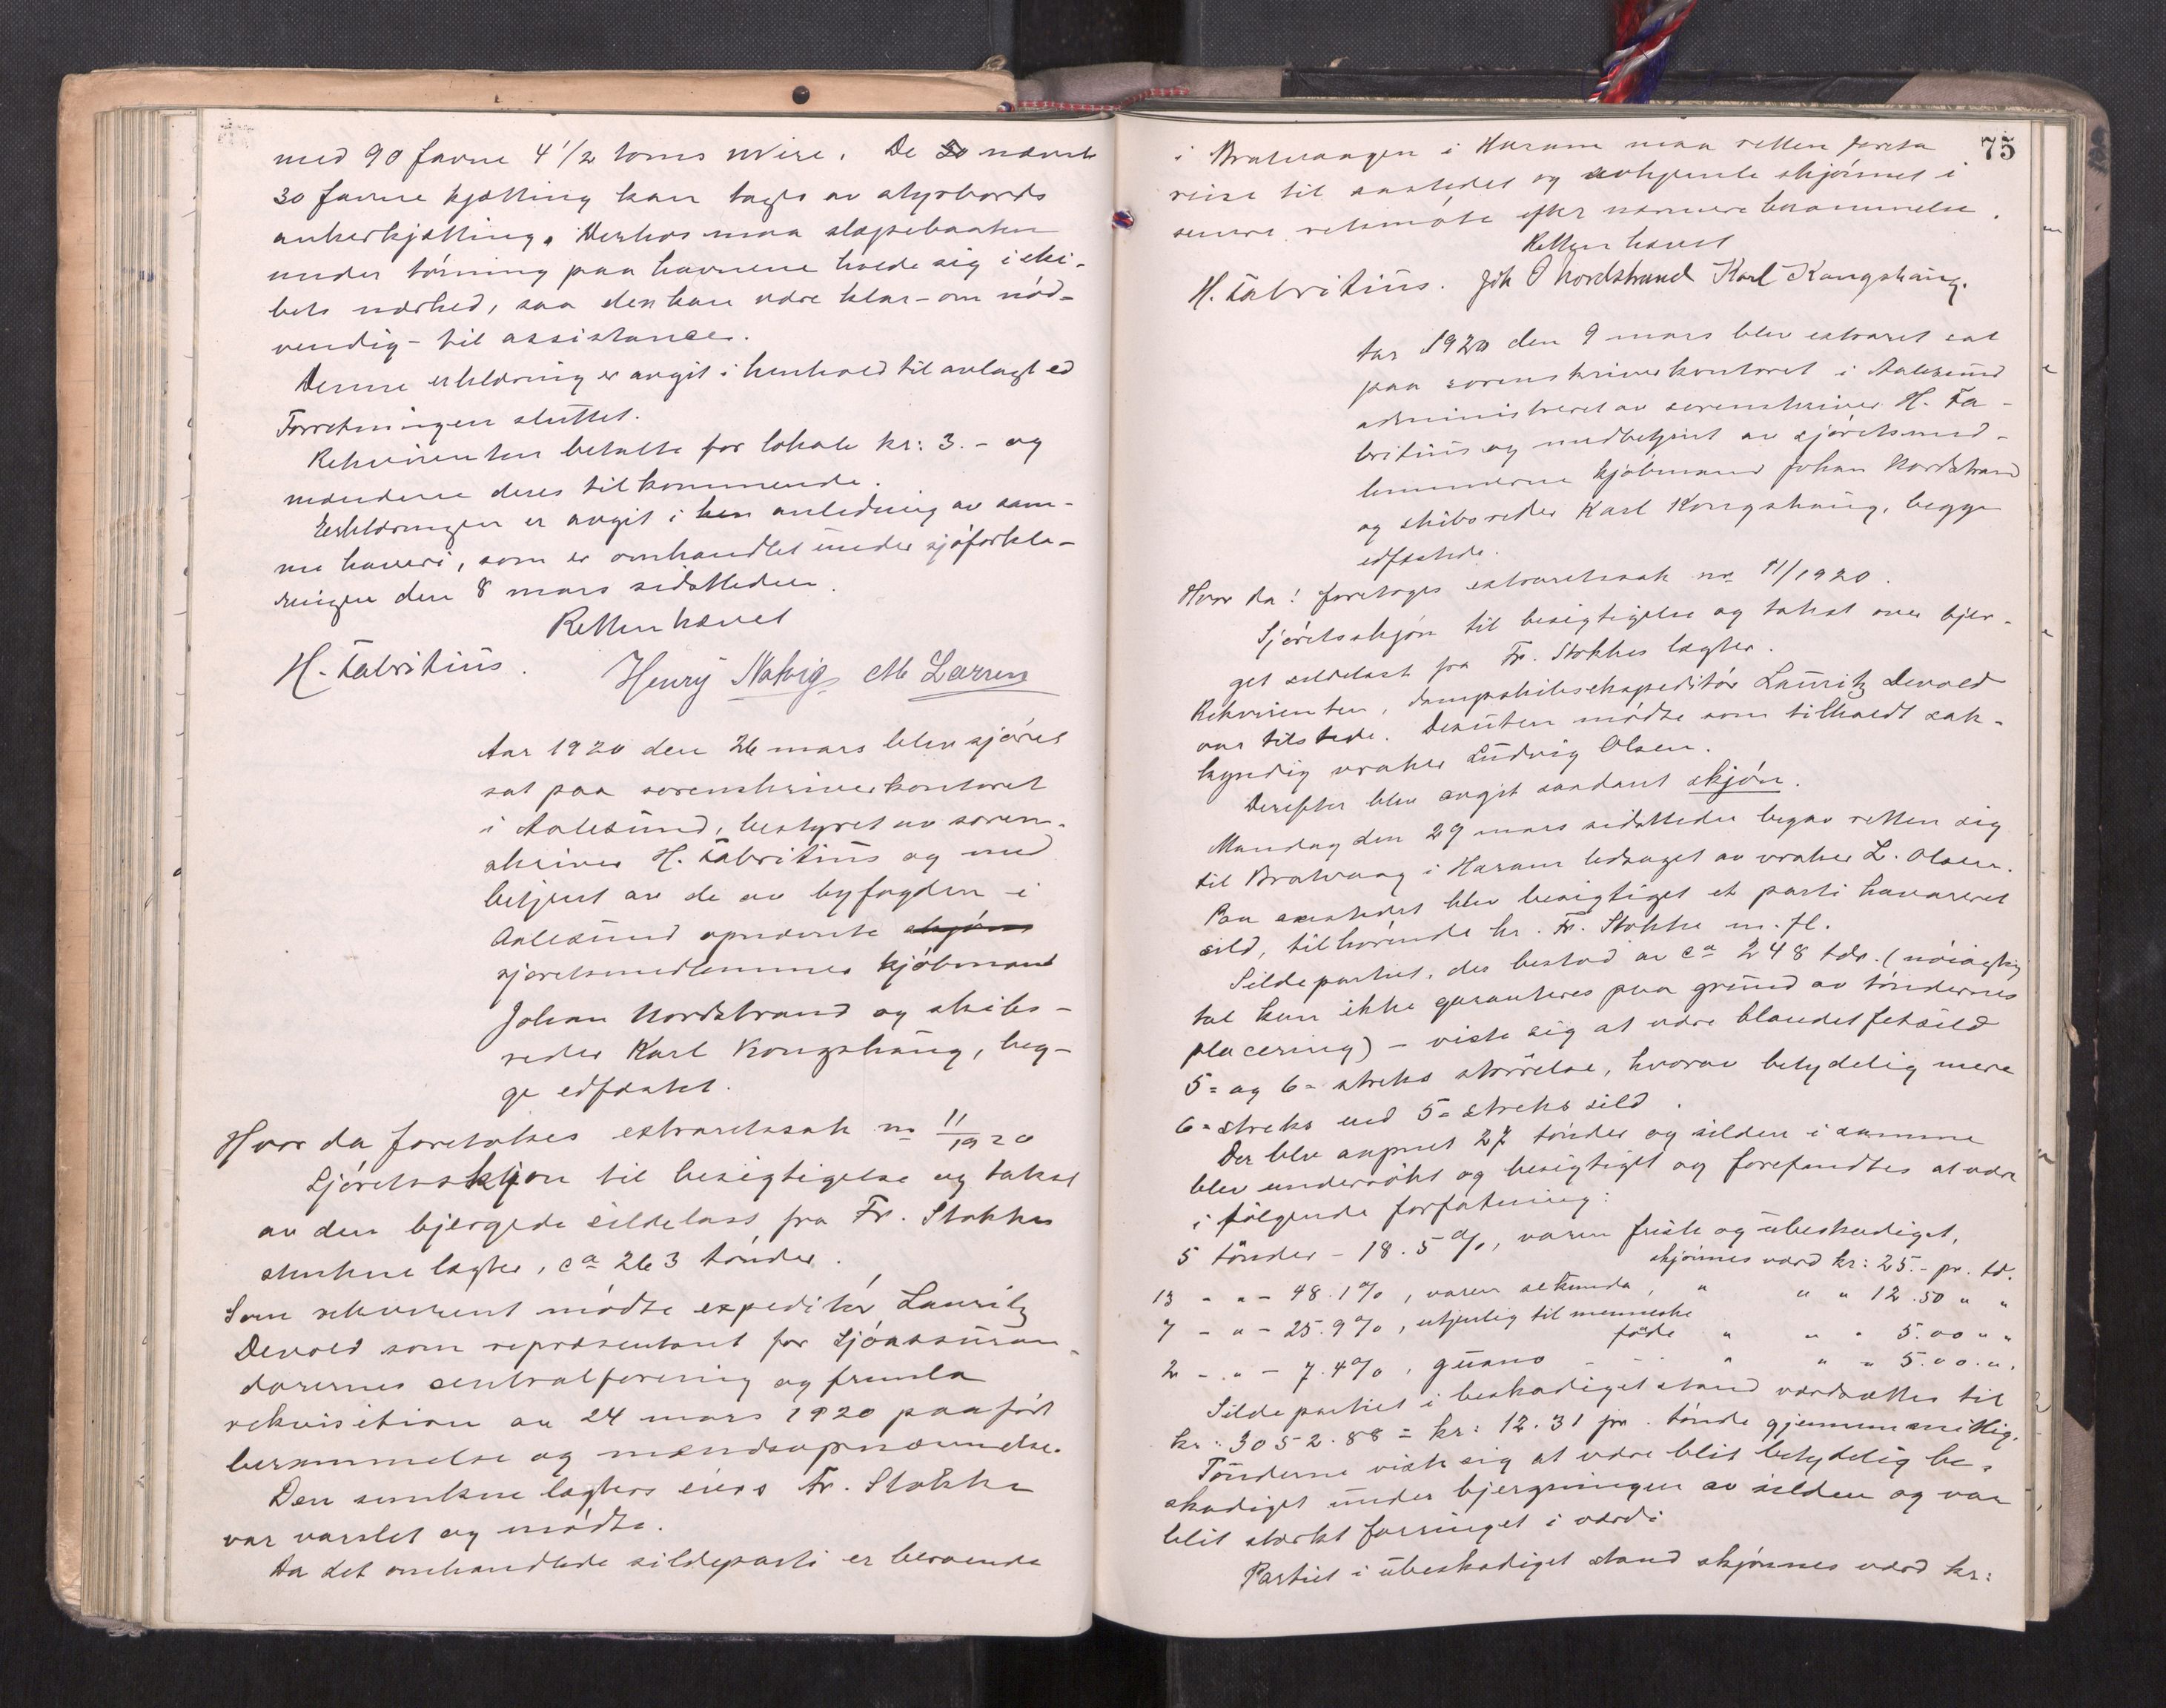 med 90 favne 4 1/2 toms wire. De nævnte
30 favne kjætting kan tages av styrbords
ankerkjætting. Derhos maa slæpebaaten
under törning paa havnene holde sig i ski-
bets nærhed, saa den kan være klar - om nöd-
vendig - til assistance.
Denne erklæring er avgit i henhold til avlagt ed
Forretningen sluttet.
Rekvirenten betalte for lokale kr: 3.- og
mændene deres tilkommende.
Erklæringen er avgit i anledning av sam-
me haveri, som er omhandlet under sjöforkla-
ringen den 8 mars sidstleden.
Retten hævet
H. Fabritius. Henry Natvig M Larsen
Aar 1920 den 26 mars blev sjöret
sat paa sorenskriverkontoret
i Aalesund, bestyret av soren-
skriver H. Fabritius og med
betjent av de av byfogden i
Aalesund opnævnte skjöns
sjöretsmedlemmer kjöbmand
Johan Nordstrand og skibs-
reder Karl Kongshaug, beg-
ge edfæstet.
Hvor da foretokes extraretssak no 11/1920
Sjöretsskjön til besigtigelse og takst
av den bjergede sildelast fra Fr. Stokkes
sunkne lægter, ca 263 tönder.
Som rekvirent mödte expeditör Lauritz
Devold som repræsentant for Sjöassuran-
dörernes centralforening og fremla
rekvisition av 24 mars 1920 paafört
berammelse og mændsopnævnelse.
Den sunkne lægters eier Fr. Stokke
var varslet og mödte.
Da det omhandlede sildeparti er beroende
75
i Bratvaagen i Haram maa retten foreta
reise til aastedet og avhjemle skjönnet i
senere retsmöte efter nærmere berammelse.
Retten hævet
H. Fabritius. Joh O Nordstrand Karl Kongshaug.
Aar 1920 den 9 mars blev extraret sat
paa sorenskriverkontoret i Aalesund
administreret av sorenskriver H. Fa-
britius og medbetjent av sjöretsmed-
lemmerne kjöbmand Johan Nordstrand
og skibsreder Karl Kongshaug, begge
edfæstede.
Hvor da! foretoges extraretssak no 11/1920.
Sjöretsskjön til besigtigelse og takst over bjer-
get sildelast fra Fr. Stokkes lægter.
Rekvirenten, dampskibsekspeditör Lauritz Devold
var tilstede. Desuten mödte som tilkaldt sak-
kyndig vraker Ludvig Olsen.
Derefter blev avgit saadant skjön.
Mandag den 29 mars sidstleden begav retten sig
til Bratvaag i Haram ledsaget av vraker L. Olsen.
Paa aastedet blev besigtiget et parti havareret
sild, tilhörende hr. Fr. Stokke m. fl.
Sildepartiet, der bestod av ca 248 tdr. (nöiagtig
tal kan ikke garanteres paa grund av töndernes
placering) - viste sig at være blandet fetsild
5= og 6= streks störrelse, hvorav betydelig mere
6= streks end 5= streks sild.
Der blev aapnet 27 tönder og silden i samme
blev undersökt og besigtiget og forefandtes at være
i fölgende forfatning:
5 tönder - 18.5 %, varen frisk og ubeskadiget,
skjönnes værd kr: 25.- pr. td.
13 - " - 48.1 %, varen sekunda, " " " 12.50 " "
7 - " - 25.9 %, utjenlig til menneske
föde " " " 5.00 " "
2 - " - 7.4 %, guano - - " " " 5.00 " "
Sildepartiet i beskadiget stand værdsættes til
kr: 3052.88 = kr: 12.31 pr. tönde gjennemsnitlig.
Tönderne viste sig at være blit betydelig be-
skadiget under bjergningen av silden og var
blit sterkt forringet i værdi
Partiet i ubeskadiget stand skjönnes værd kr: